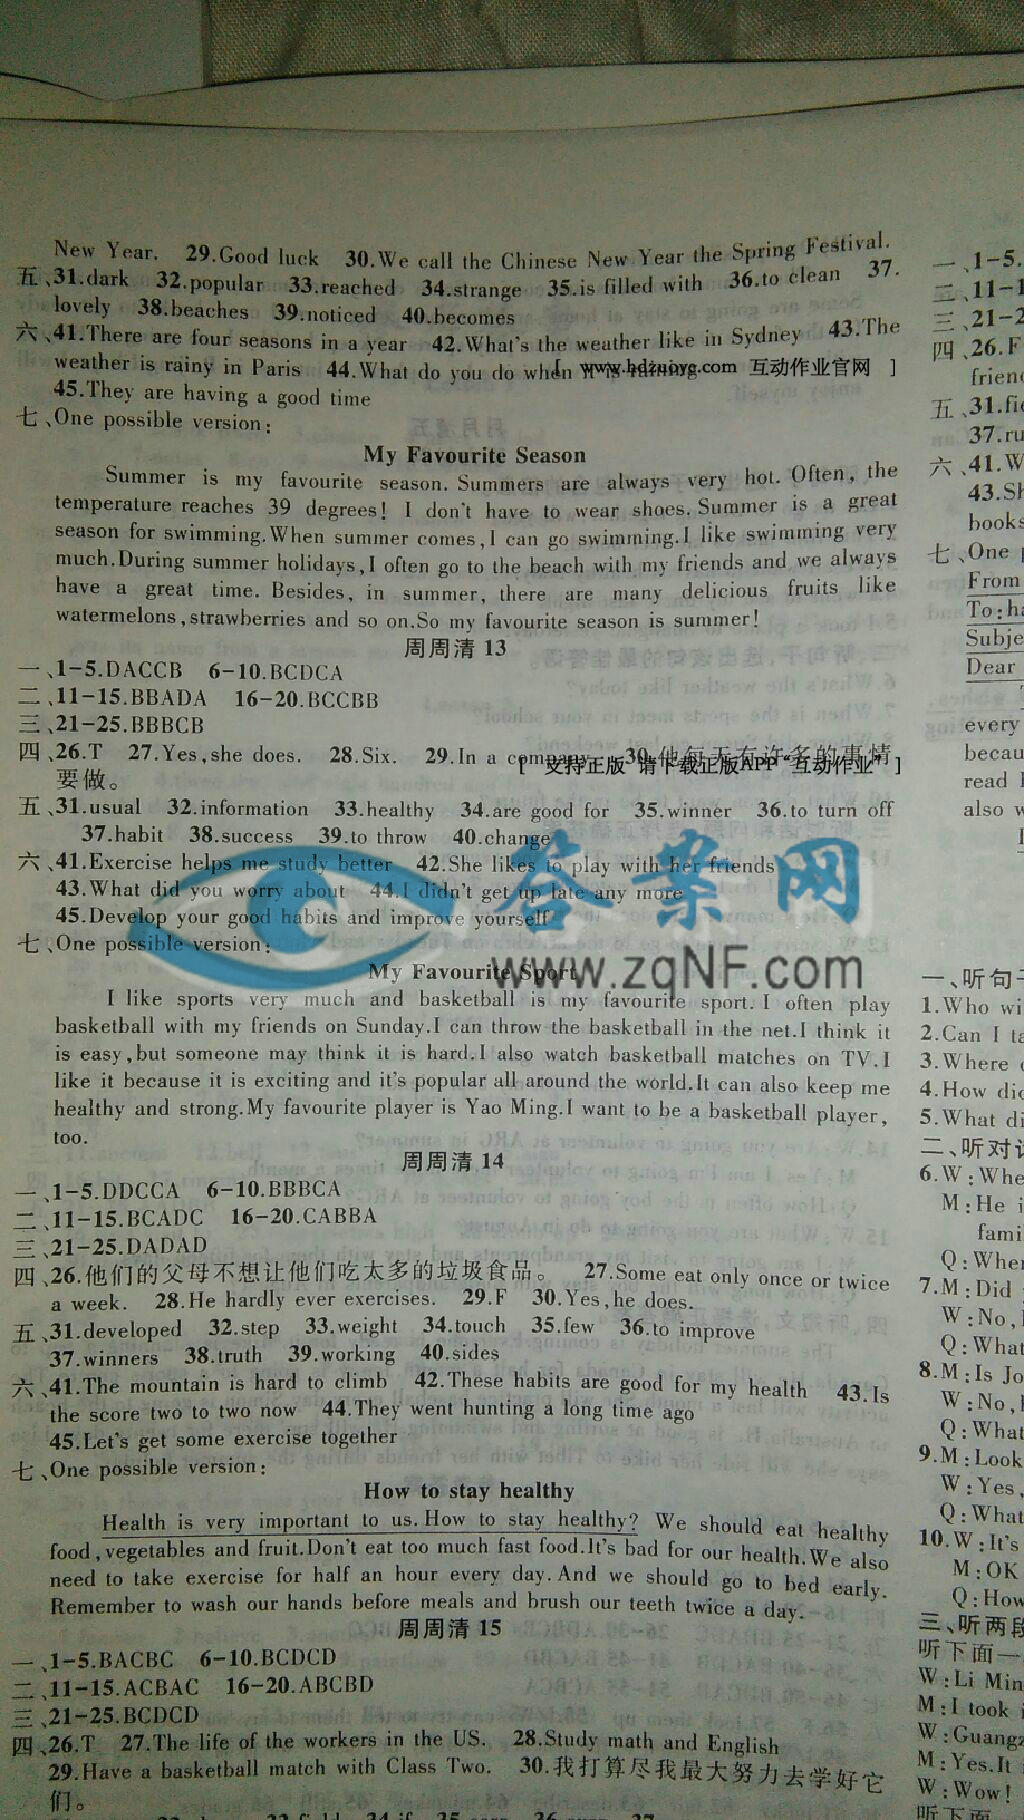 New Year. 29.Good luck 30.We call the Chinese New Year the Spring Festival.
五、31.dark 32.popular 33.reached 34.strange 35.is filled with 36.to clean 37.
lovely 38.beaches 39.noticed 40.becomes
六、41.There are four seasons in a year 42.What's the weather like in Sydney 43.The
weather is rainy in Paris 44.What do you do when it is
[ www.hdzuoye.com 互动作业官网 ]
45.They are having a good time
七、One possible version:
My Favourite Season
Summer is my favourite season. Summers are always very hot. Often, the
temperature reaches 39 degrees! I don't have to wear shoes. Summer is a great
season for swimming.When summer comes,I can go swimming.I like swimming very
much.During summer holidays,I often go to the beach with my friends and we always
have a great time. Besides, in summer, there are many delicious fruits like
watermelons,strawberries and so on.So my favourite season is summer!
周周清 13
一、1-5.DACCB 6-10.BCDCA
二、11-15.BBADA 16-20.BCCBB
三、21-25.BBBCB
四、26.T 27.Yes,she does. 28.Six. 29.In a company. 30.他每天有许多的事情
[ 支持正版 请下载正版APP“互动作业” ]
要做。
五、31.usual 32.information 33.healthy 34.are good for 35.winner 36.to turn off
37.habit 38.success 39.to throw 40.change
六、41.Exercise helps me study better 42.She likes to play with her friends
43.What did you worry about 44.I didn't get up late any more
45.Develop your good habits and improve yourself
答案网
www.zqNF.com
七、One possible version:
My Favourite Sport
I like sports very much and basketball is my favourite sport. I often play
basketball with my friends on Sunday.I can throw the basketball in the net.I think it
is easy,but someone may think it is hard.I also watch basketball matches on TV.I
like it because it is exciting and it's popular all around the world.It can also keep me
healthy and strong.My favourite player is Yao Ming.I want to be a basketball player,
too.
周周清 14
一、1-5.DDCCA 6-10.BBBCA
二、11-15.BCADC 16-20.CABBA
三、21-25.DADAD
四、26.他们的父母不想让他们吃太多的垃圾食品。 27.Some eat only once or twice
a week. 28.He hardly ever exercises. 29.F 30.Yes,he does.
五、31.developed 32.step 33.weight 34.touch 35.few 36.to improve
37.winners 38.truth 39.working 40.sides
六、41.The mountain is hard to climb 42.These habits are good for my health 43.Is
the score two to two now 44.They went hunting a long time ago
45.Let's get some exercise together
七、One possible version:
How to stay healthy
Health is very important to us. How to stay healthy? We should eat healthy
food,vegetables and fruit.Don't eat too much fast food.It's bad for our health.We also
need to take exercise for half an hour every day. And we should go to bed early.
Remember to wash our hands before meals and brush our teeth twice a day.
周周清 15
一、1-5.BACBC 6-10.BCDCD
二、11-15.ACBAC 16-20.ABCBD
三、21-25.BCDCD
四、26.T 27.The life of the workers in the US. 28.Study math and English
29.Have a basketball match with Class Two. 30.我打算尽我最大努力去学好它
们。
一、1-5.
二、11-1
三、21-2
四、26.F
friend
五、31.fi
37.ru
六、41.W
43.Sh
books
七、One p
From
To:ha
Subje
Dear
every
becau
read
also w
一、听句子
1.Who wi
2.Can I ta
3.Where
4.How did
5.What di
二、听对话
6.W:Whe
M:He i
fami
Q:Wher
7.M:Did
W:No,
Q:What
8.M:Is Jo
W:No,
Q:What
9.M:Look
W:Yes,
Q:What
10.W:It's
M:OK
Q:How
三、听两段
听下面一
W:Li Min
M:I took i
W:Guangz
M:Yes.It
W:Wow!
听下面